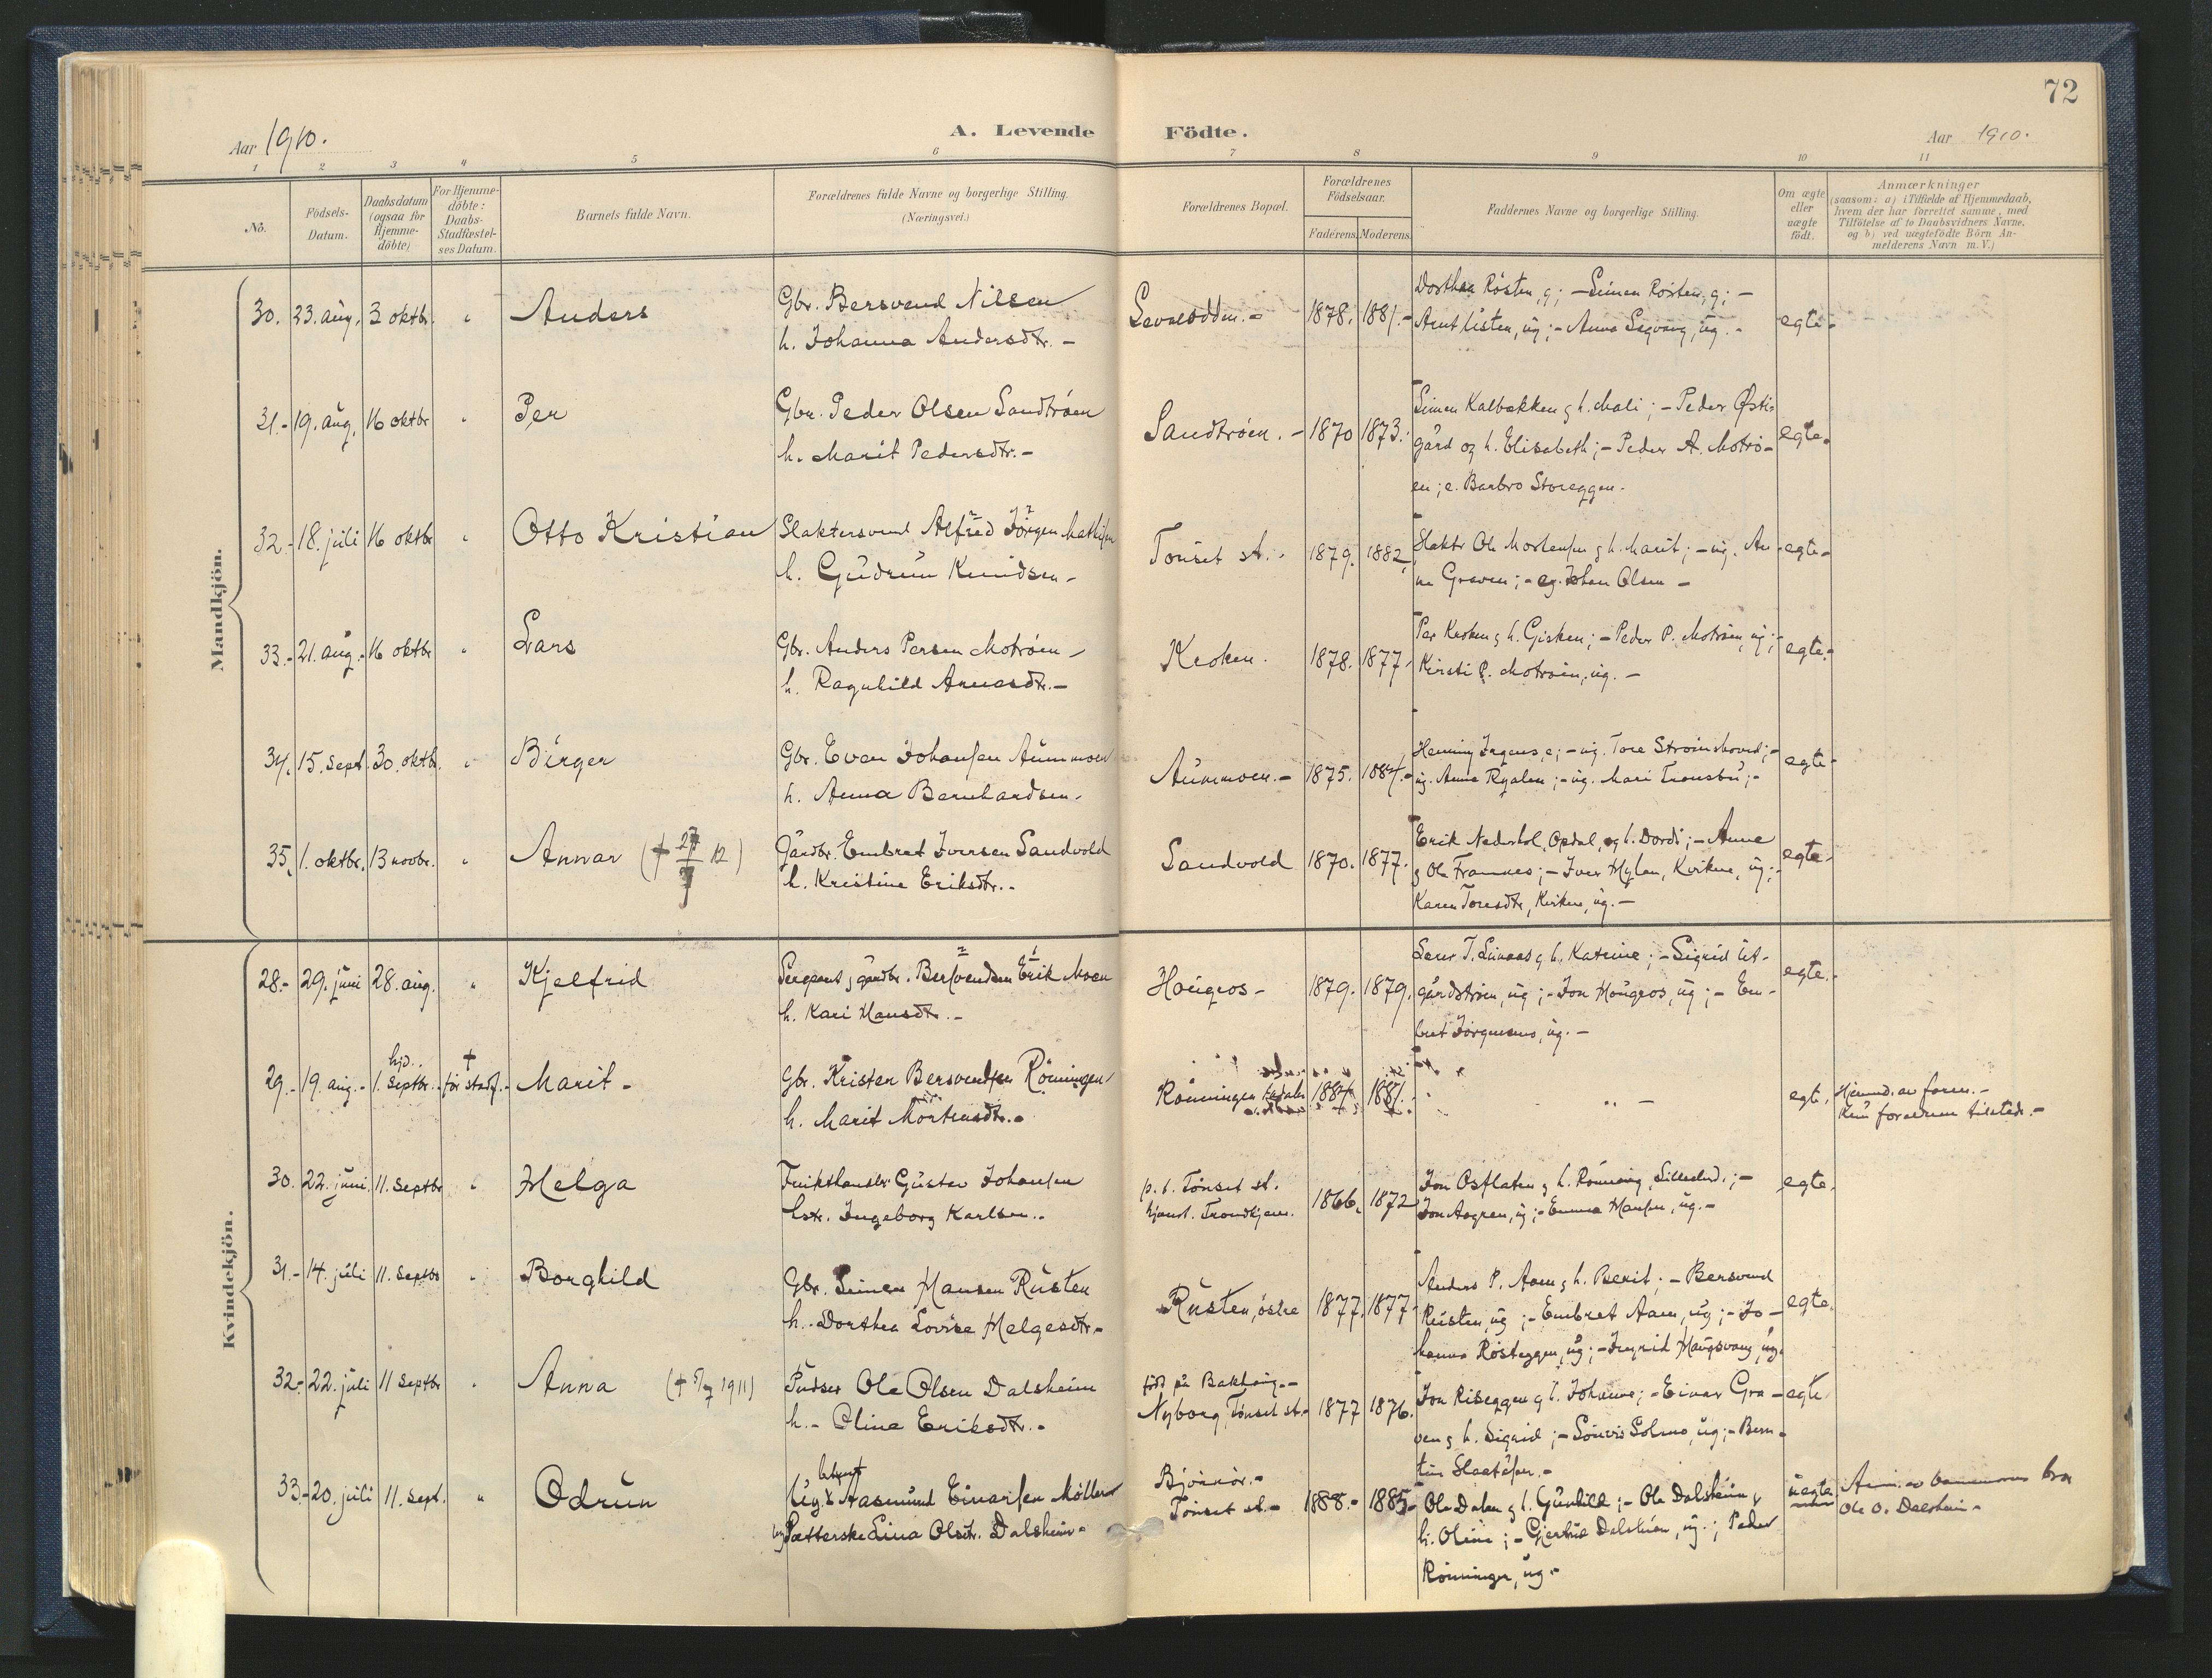 72
Aar 1910.
A. Levende Födte.
Aar 1910.
1 2 3 4 5 6 7 8 9 10 11
No.
Födsels-Datum.
Daabsdatum (ogsaa for Hjemme-döbte)
For Hjemme-döbte: Daabs-Stadfæstel-ses Datum.
Barnets fulde Navn.
Forældrenes fulde Navne og borgerlige Stilling.
(Næringsvei.)
Forældrenes Bopæl.
Forældrenes Födselsaar.
Faderens. Moderens.
Faddernes Navne og borgerlige Stilling.
Om ægte eller uægte födt.
Anmærkninger
(saasom: a) i Tilfælde af Hjemmedaab,
hvem der har forrettet samme, med
Tilföielse af to Daabsvidners Navne,
og b) ved uægtefödte Börn An-
melderens Navn m. V.)
Mandkjön.
30. 23. aug. 3 oktbr. " Anders
Gbr. Bersvend Nilsen
h. Johanna Andersdtr. -
1878. 1881.-
Dorthea Rösten, g; - Simen Rösten, g; -
ug; - Anna ug. -
egte-
31.- 19. aug. 16 oktbr " Per
Gbr. Peder Olsen Sandtröen
h. Marit Pedersdtr. -
Sandtröen. - 1870 1873.
Simen Kalbækken g h. Mali; - Peder Østi-
gård og h. Elisabeth; - Peder A. Motrö-
en; e. Barbro Storeggen.
egte.
32.- 18. juli 16 oktbr " Otto Kristian
Slaktersvend Alfred Jörgen Mathisen
h. Gudrun Knudsen -
Tönset st. - 1879. 1882,
Slaktr Ole Mortensen g h. Marit; - ug. An-
na Graven; - Johan Olsen -
egte-
33.- 21. aug.- 16 oktbr " Lars
Gbr. Anders Persen Motröen -
h. Ragnhild Arnesdtr. -
Kroken. 1878. 1877.
Per Kroken g h. Gisken; - Peder P. Motröen, ug; -
Kirsti P. Motröen, ug. -
egte-
34. 15. sept. 30. oktbr. " Birger
Gbr. Even Johansen Aummoen
h. Anna Bernhardsen.
Aummoen. - 1875. 1884.-
Henning e; - ug. Tore
ug. Anna - ug. Mari Tronsbu; -
egte-
35. 1. oktbr. 13 novbr. " Annar († 27/7 12)
Gårdbr. Embret Iversen Sandvold
h. Kristine Eriksdtr. -
Sandvold 1870. 1877.
Erik Opdal, og h. Dordi; - Anne
g Ole Framnes; - Iver Kvikne, ug; -
Karen Toresdtr, ug. -
egte-
Kvindekjön.
28.- 29. juni 28. aug. " Kjelfrid
2 1
Sergeant g gårdbr. Bersvendsen Erik Moen
h. Kari Hansdtr. -
Haugros - 1879. 1879.
g h. Katrine; - Sigrid Ut-
gårdströen, ug; - Jon Haugros, ug; - Em-
bret Jörgensmo, ug. -
egte.-
29.- 19. aug.- hjd. 1. septbr. - † för stadf. - Marit -
Gbr. Kristen Bersvendsen Rönningen
h. Marit Mortensdtr. -
Rönningen 1884 1881.
" -
egte. Hjemmd. av
Kun foreldrene tilstede. -
30. 22. juni. 11. septbr " Helga
Gustav Johansen
hstr. Ingeborg Karlsen. -
p. t. Tönset st.
Trondhjem. 1866. 1872
Jon Osflaten g h. Rönnaug, -
Jon ug; - Emma Hansen, ug. -
egte.
31.- 14. juli 11. septbr " Borghild
Gbr. Simen Hansen Rusten
h. Dorthea Lovise Helgesdtr. -
Rusten, östre 1877. 1877.
Anders P. Aaen g h. Berit; - Bersvend
Rusten, ug; - Embret Aaen, ug; - Jo-
hanna Rösteggen, ug; - Ingrid Haugsvang, ug.
egte.
32.- 22. juli 11 septbr " Anna († 5/7 1911)
Pudser Ole Olsen Dalsheim
h. - Oline Eriksdtr. -
född på Bakhaug. -
Nyborg, Tönset st. - 1877 1876.
Jon Riseggen g h. Johanne; - Einar Gra-
ven g h. Sigrid; - ug; - Bern-
tine
egte.
33.- 20. juli 11. sept. " Odrun
Ug. Aasmund Einarsen Möller
ug. Lina Olsdtr. Dalsheim -
Björnör. -
Tönset st. - 1888.- 1885-
Ole Dalen g h. Gunhild; - Ole Dalsheim g
h. Oline; - Gjertrud Dalsheim, ug.; Peder
Rönningen, ug. -
uegte Anm. av barnemoren bror
Ole O. Dalsheim -